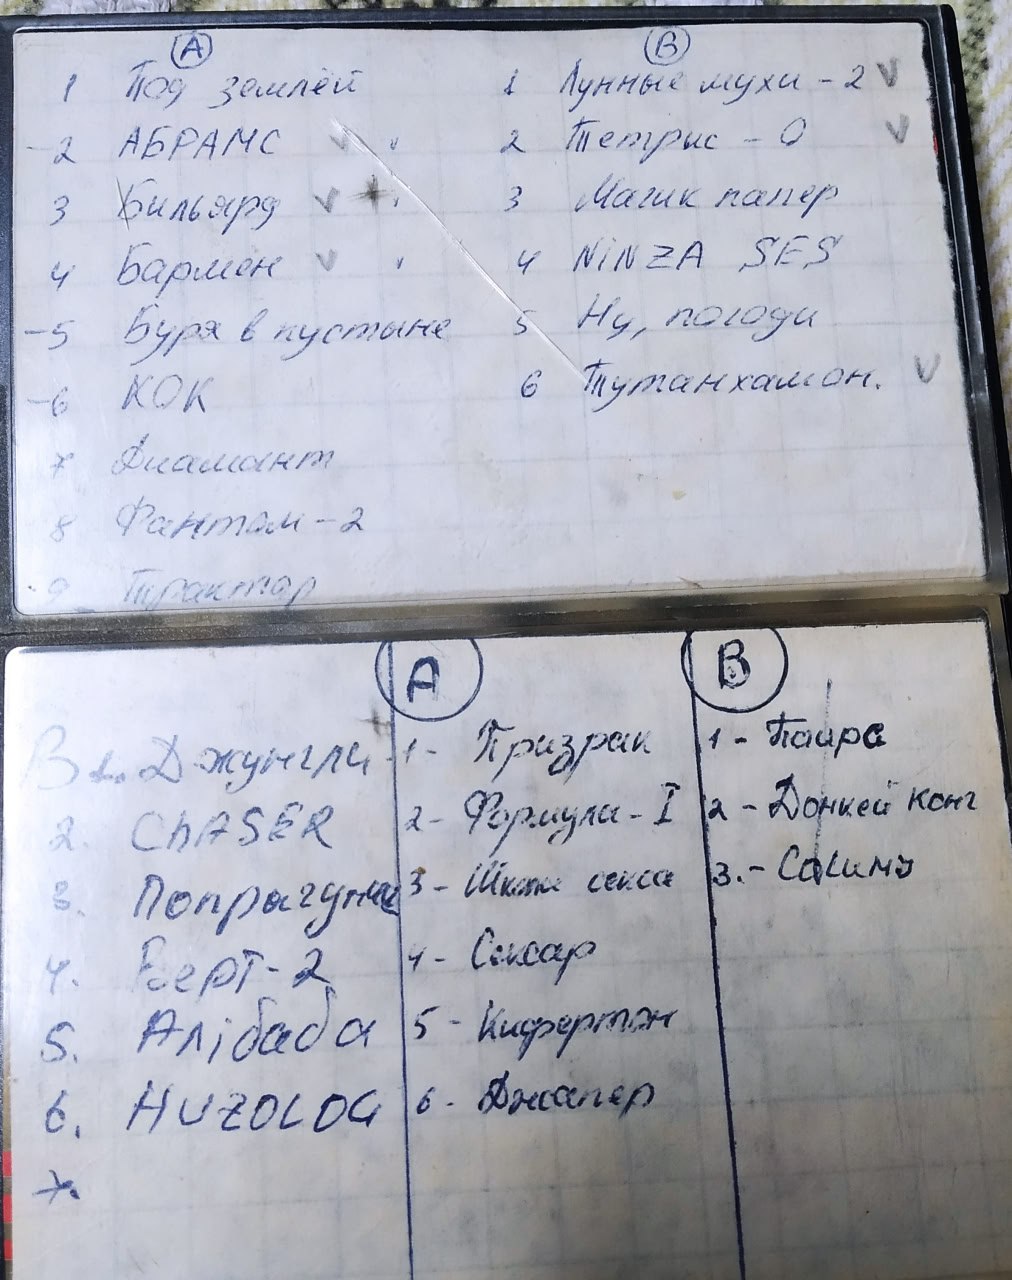 А
1 Под землёй
-2 АБРАМС
3 Бильярд
4 Бармен
-5 Буря в пустыне
-6 КОК
7 Диамант
8 Фантом-2
9 Трактор
В
1 Лунные мухи - 2
2 Тетрис - 0
3 Магик папер
4 NINZA SES
5 Ну, погоди
6 Тутанхамон.
В 1. Джунгли
2. ChASER
3. Попрыгунчик
4. Берт-2
5. Алібаба
6. HUZOLOG
7.
А
1- Призрак
2- Формула-I
3- секса
4- Сексар
5-
6- Джапер
В
1- Паира
2- Донкей конг
3.-